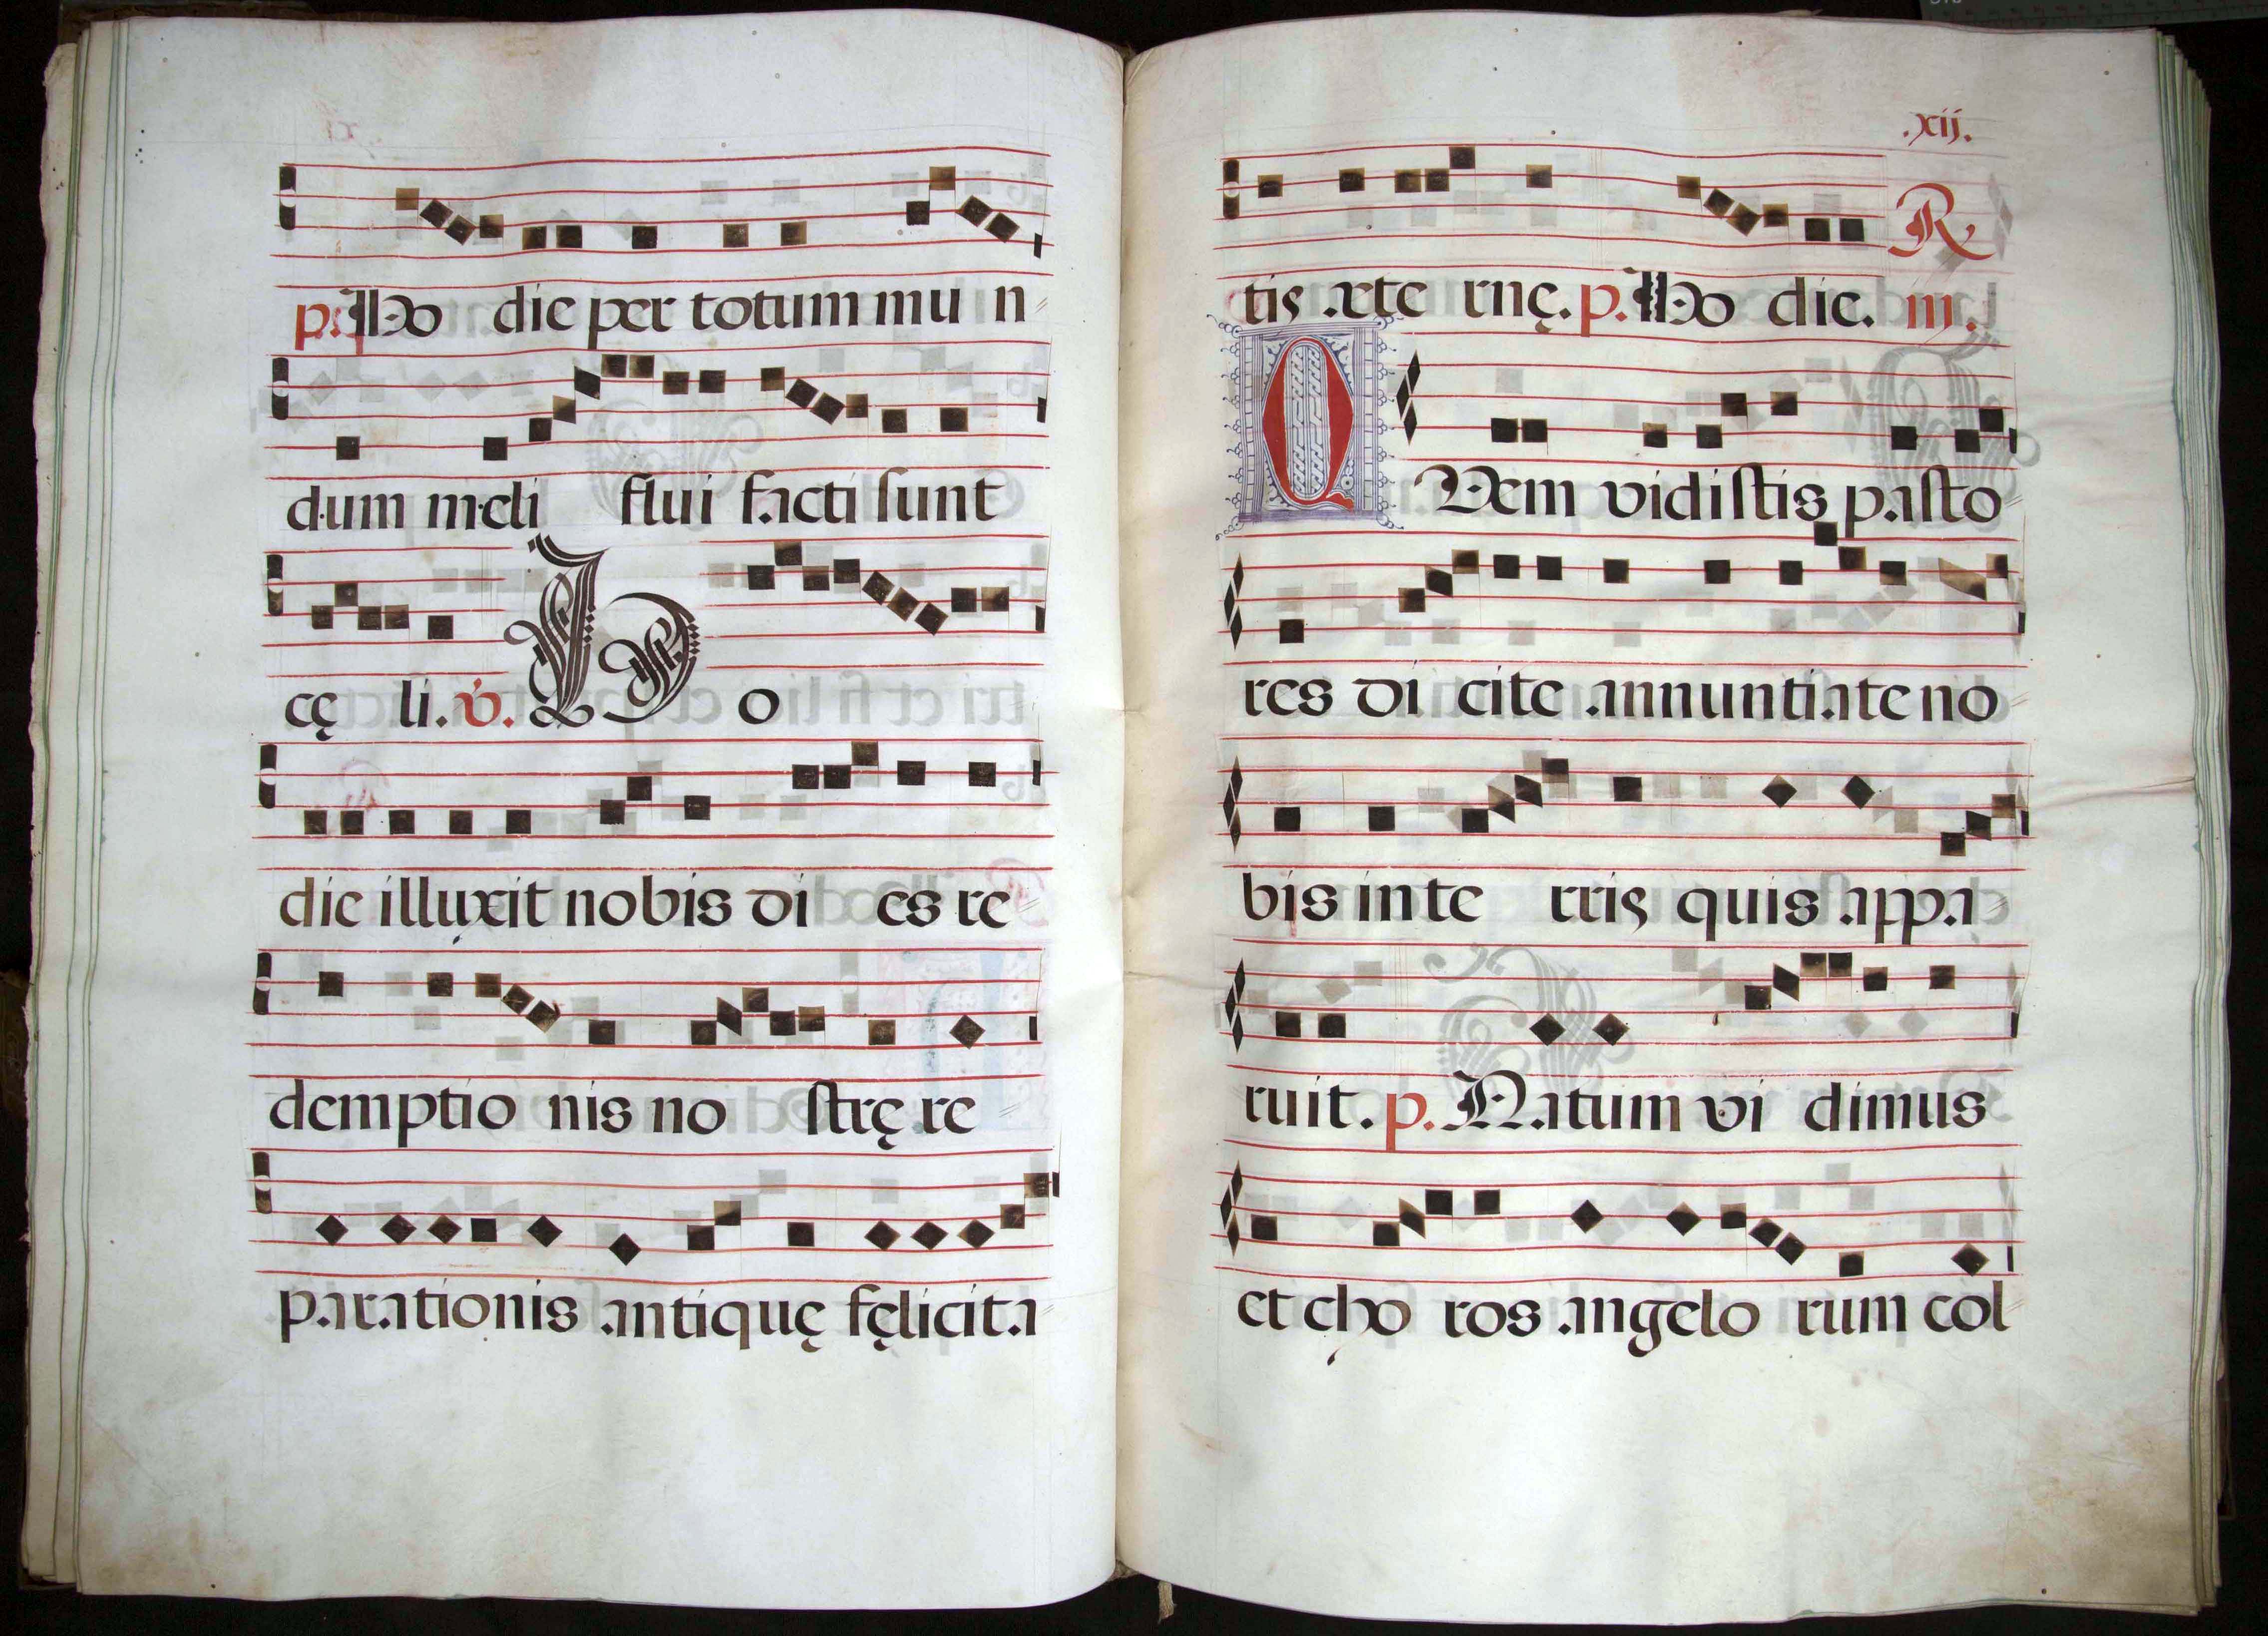 p. Ho die per totum mu n
dum meli flui facti sunt
cę li. v. Ho
die illuxit nobis di es re
demptio nis no strę re
parationis antiquę fęlicita
.xij.
R
tis æte rnę. p. Ho die. iij.
QVem vidistis pasto
res di cite annuntiate no
bis in te rris quis appa
ruit. p. Natum vi dimus
et cho ros angelo rum col